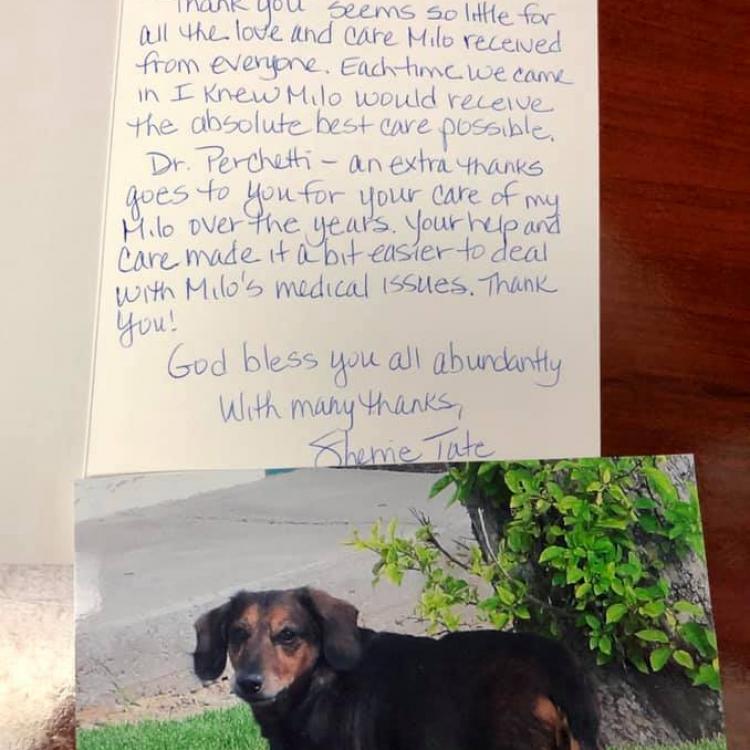 Thank you seems so little for
all the love and care Milo received
from everyone. Each time we came
in I knew Milo would receive
the absolute best care possible.
Dr. Perchetti - an extra thanks
goes to you for your care of my
Milo over the years. Your help and
care made it a bit easier to deal
with Milo's medical issues. Thank
you!
God bless you all abundantly
With many thanks,
Sherrie Tate